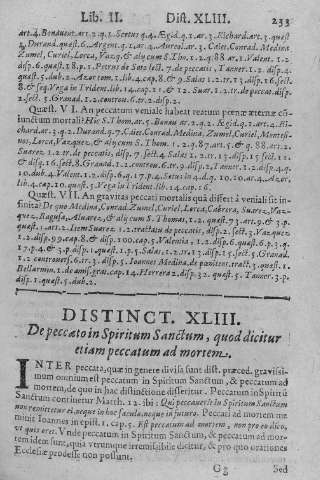 Lib. II. Dist. XLIII. 233
art. 4. Bonauent. ar. 2. q. 1. Scotus q. 4. Ægid. q. 1. ar. 3. Richard. art. 3. quest
2. Durand. quest. 6. Argent. q. 1. ar. 4. Aureol. ar. 3. Caiet. Conrad. Medina
Zumel, Curiel, Lorca, Vazq. & aly cum S. Tho. 1. 2. q. 88 ar. 1. Valent. 1. 2
disp. 6. quest. 18. p. 1. Petrus de Soto lect. 7. de peccatis, Tanner. 1. 2. disp. 4.
quest. 5. dub. 2. Azor tom. 1. lib. 4. cap. 8. & 9. Salas 1. 2. tr. 13. disp. 16. sect.
8. & seq. Vega in Trident. lib. 14. cap. 11. & 12. Suar. 1. 2. tr. de peccat. disp.
2. sect. 5. Granad. 1. 2. contron. 6. tr. 2. disp. 2.
Quæst. VI. An peccatum veniale habeat reatum pœnæ æternæ cõ-
iunctum mortali? Hic S. Thom. ar. 5. Bonau. ar. 2. q. 2. Ægid. q. 1. art. 4. Ri-
chard. ar. 3. q. 2. Durand. q. 7. Caiet. Conrad. Medina, Zumel, Curiel, Montesi-
nos, Lorca, Vazquez, & aly cum S. Thom. 1. 2. q. 87. art. 5. & q. 88. ar. 2.
Suarez. 1. 2. tr. de peccatis, disp. 7. sect. 4. Salas 1. 2. tr. 13. disp. 15. sect. 12.
& disp. 16. sect. 8. Granad. 1. 2. contron. 6. tr. 9. disp. 2. Tanner. 1. 2. disp. 4. q.
10. dub. 4. Valent. 1. 2. disp. 6. q. 17. p. 4. Sotus in 4. d. q. 10. 10. ar. 4. Azor.
lib. 4. cap. 10. quest. 5. Vega in Trident. lib. 14. cap. 16.
Quæst. VII. An grauitas peccati mortalis quà differt à veniali sit in-
finita? De quo Medina, Conrad. Zumel, Curiel, Lorca, Cabrera, Suarez, Vaz-
quez, Ragusa, Aluarez, & aly cum S. Thoma, 1. 2. quest. 73. art. 9. & 3. p.
quest. 1. art. 2. Item Suarez 1. 2. tractatu de peccatis, disp. 2. sect. 7. Vazquez
1. 2. disp. 99. cap. 8. & disp. 100. cap. 5. Valentia, 1. 2. disp. 6. quest. 6. p. 3. q.
7. p. 4. & 3. p. disp. 1. quest. 1. p. 5. Salas 1. 2. tr. 13. disp. 2. sect. 5. Granad.
1. 2. contronersi. 6. tr. 3. disp. 5. Ioannes Medina, de pœnitent. tract. 3. quest. 1.
Bellarmin. 1. de amiss. grat. cap. 14. Herrera 2. disp. 32. quest. 5. Tanner. 3. p.
disp. 1. quest. 5. dub. 2.
DISTINCT. XLIII.
De peccato in Spiritum Sanctum, quod dicitur
etiam peccatum ad mortem.
INTER peccata, quæ in genere diuisa sunt dist. præced. grauissi-
mum omnium est peccatum in Spiritum Sanctum, & peccatum ad
mortem, de quo in hac distinctione disseritur. Peccatum in Spiritũ
Sanctum continetur Matth. 12. ibi: Qui peccauerit in Spiritum Sanctum
non remittetur ei, neque in hoc sæculo, neque in futuro. Peccati ad mortem me-
minit Ioannes in epist. 1. cap. 5. Est peccatum ad mortem, non pro eo dico,
vt quis oret. Vnde peccatum in Spiritum Sanctum, & peccatum ad mor-
tem idem sunt, quia vtrumque irremissibile dicitur, & pro quo orationes
Ecclesiæ prodesse non possunt.
Gg Sed